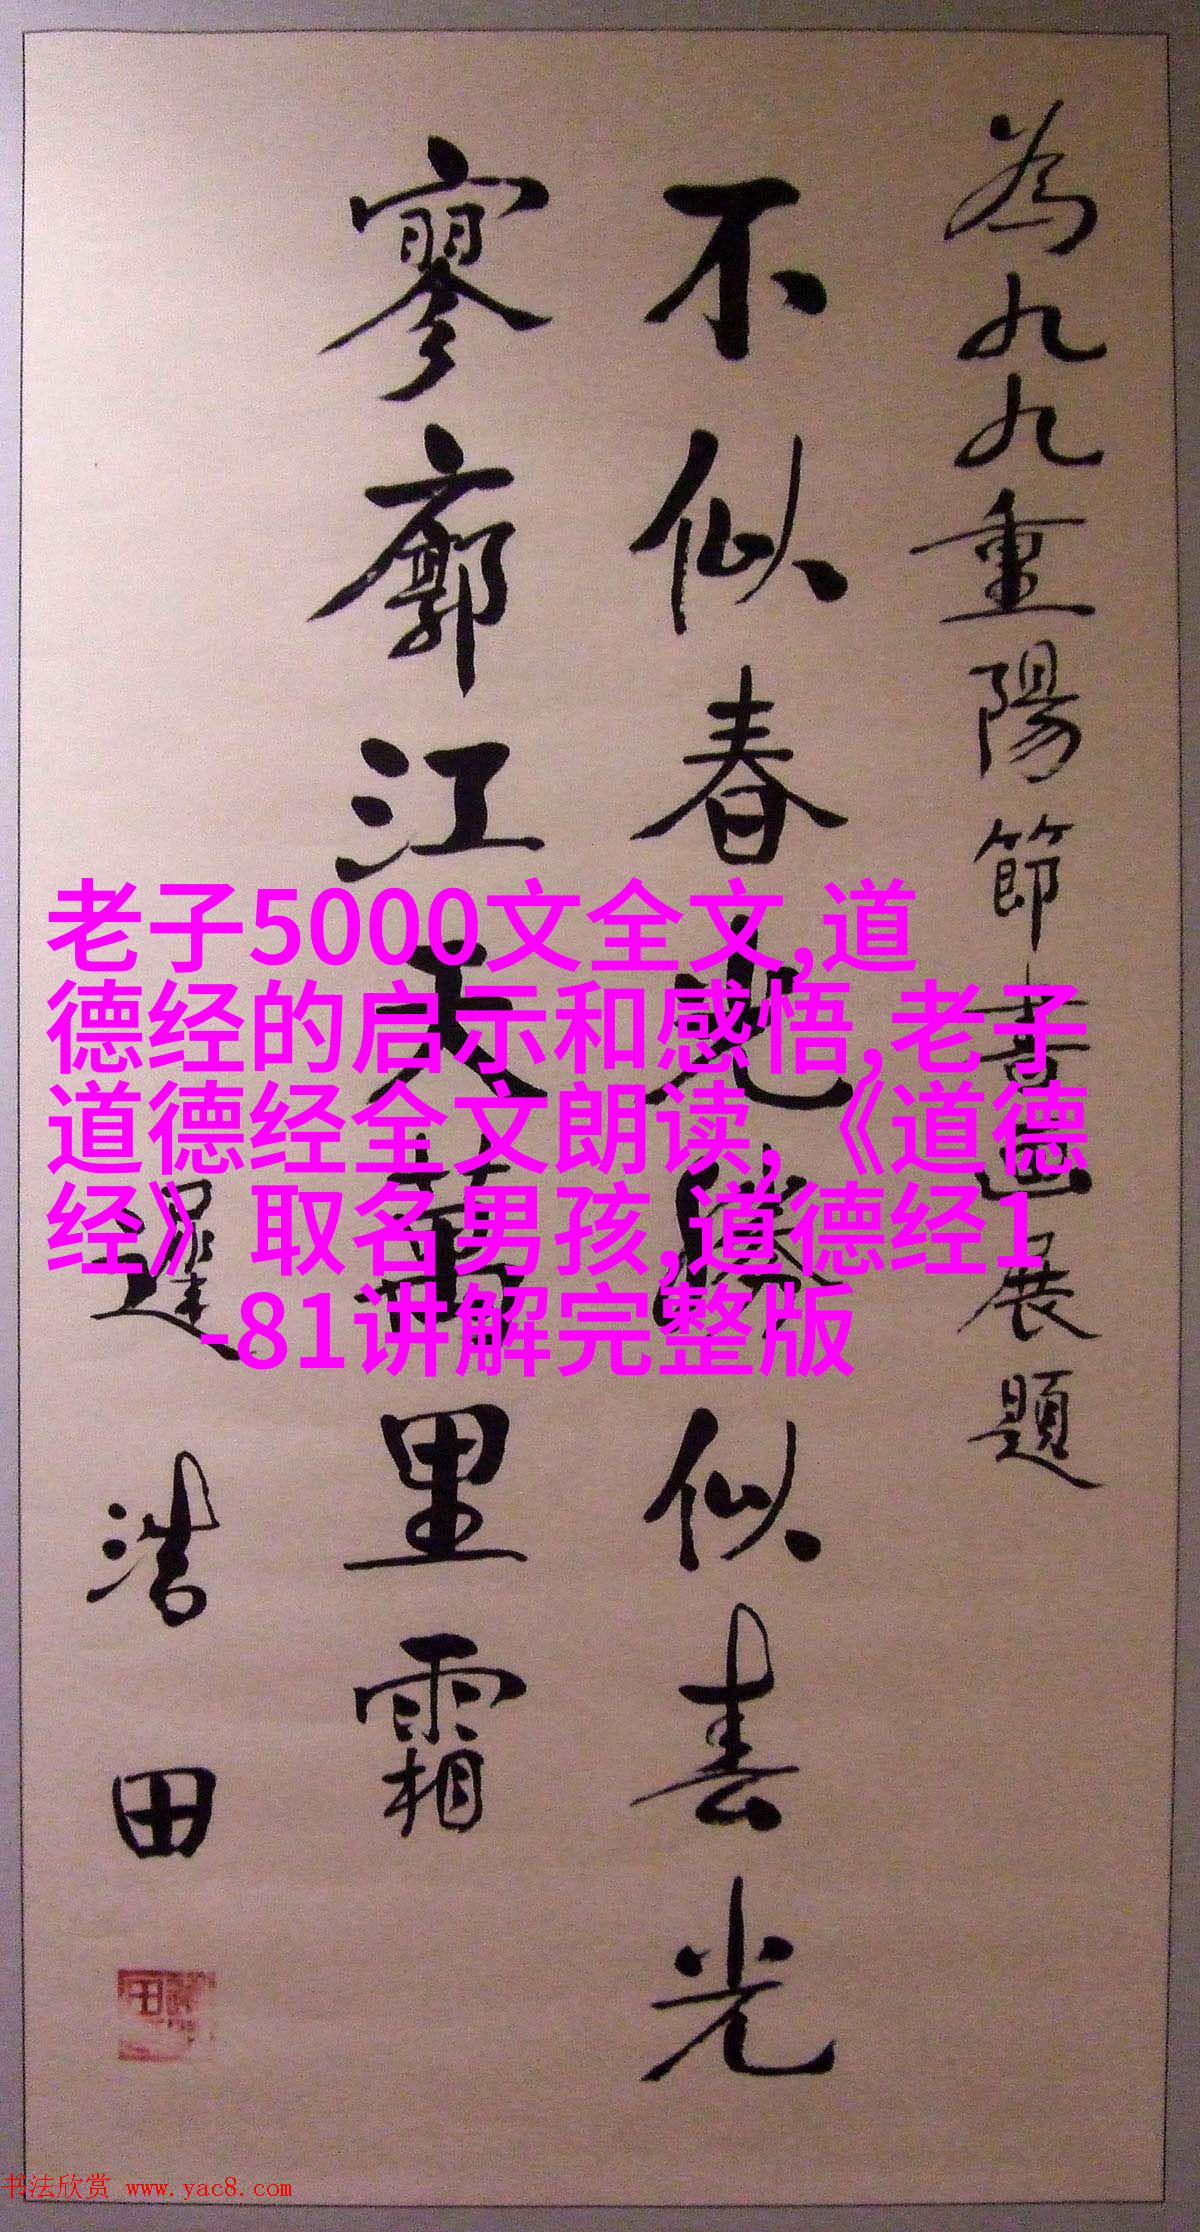 為九九重陽節書畫展題
不似春光勝似春光
寥廓江天萬里霜
浩田
老子5000文全文,道
德经的启示和感悟,老子
道德经全文朗读,《道德
经》取名男孩,道德经1
-81讲解完整版
书法欣赏 www.yac8.com